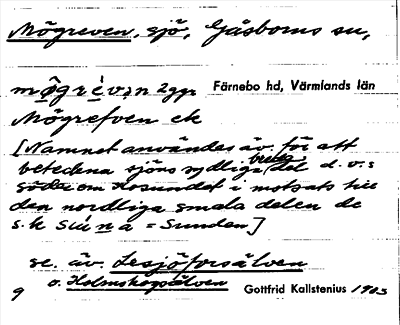 Mögreven, sjö, Gåsborns sn,
Färnebo hd, Värmlands län
mögrèven 2ggr
Mögrefven ek
[Namnet användes äv. för att
beteckna sjöns sydliga breda del d.v.s
söder om Hosundet i motsats till
den nordliga smala delen de
s.k súna = Sunden]
se. äv. Lesjöforsälven
o. Holmskogsälven
9
Gottfrid Kallstenius 1903